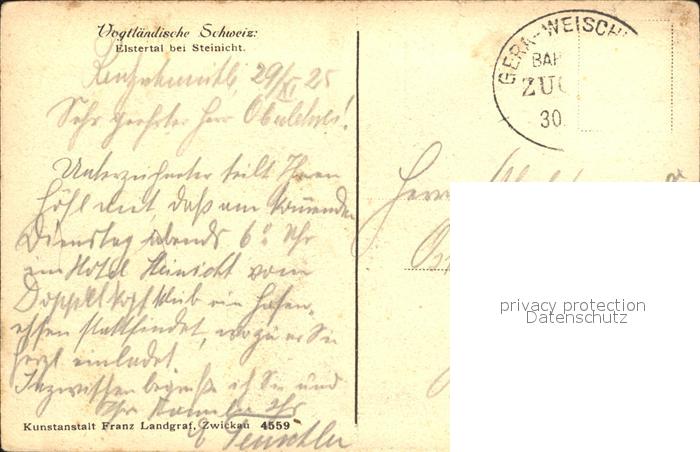 Vogtländische Schweiz:
Elstertal bei Steinicht.
29/XI 25
Sehr geehrter Herr
Unterzeichneter teilt Ihnen
höfl mit, daß am kommenden
Dienstag abends 6° Uhr
im Hotel Steinicht vom
Doppelkopfklub ein Hasen-
essen stattfindet, wozu er Sie
herzl einladet.
Inzwischen begrüße ich Sie und
Ihr
Kunstanstalt Franz Landgraf, Zwickau 4559
GERA-WEISCH
BAH
ZUG
30.
Herrn
privacy protection
Datenschutz